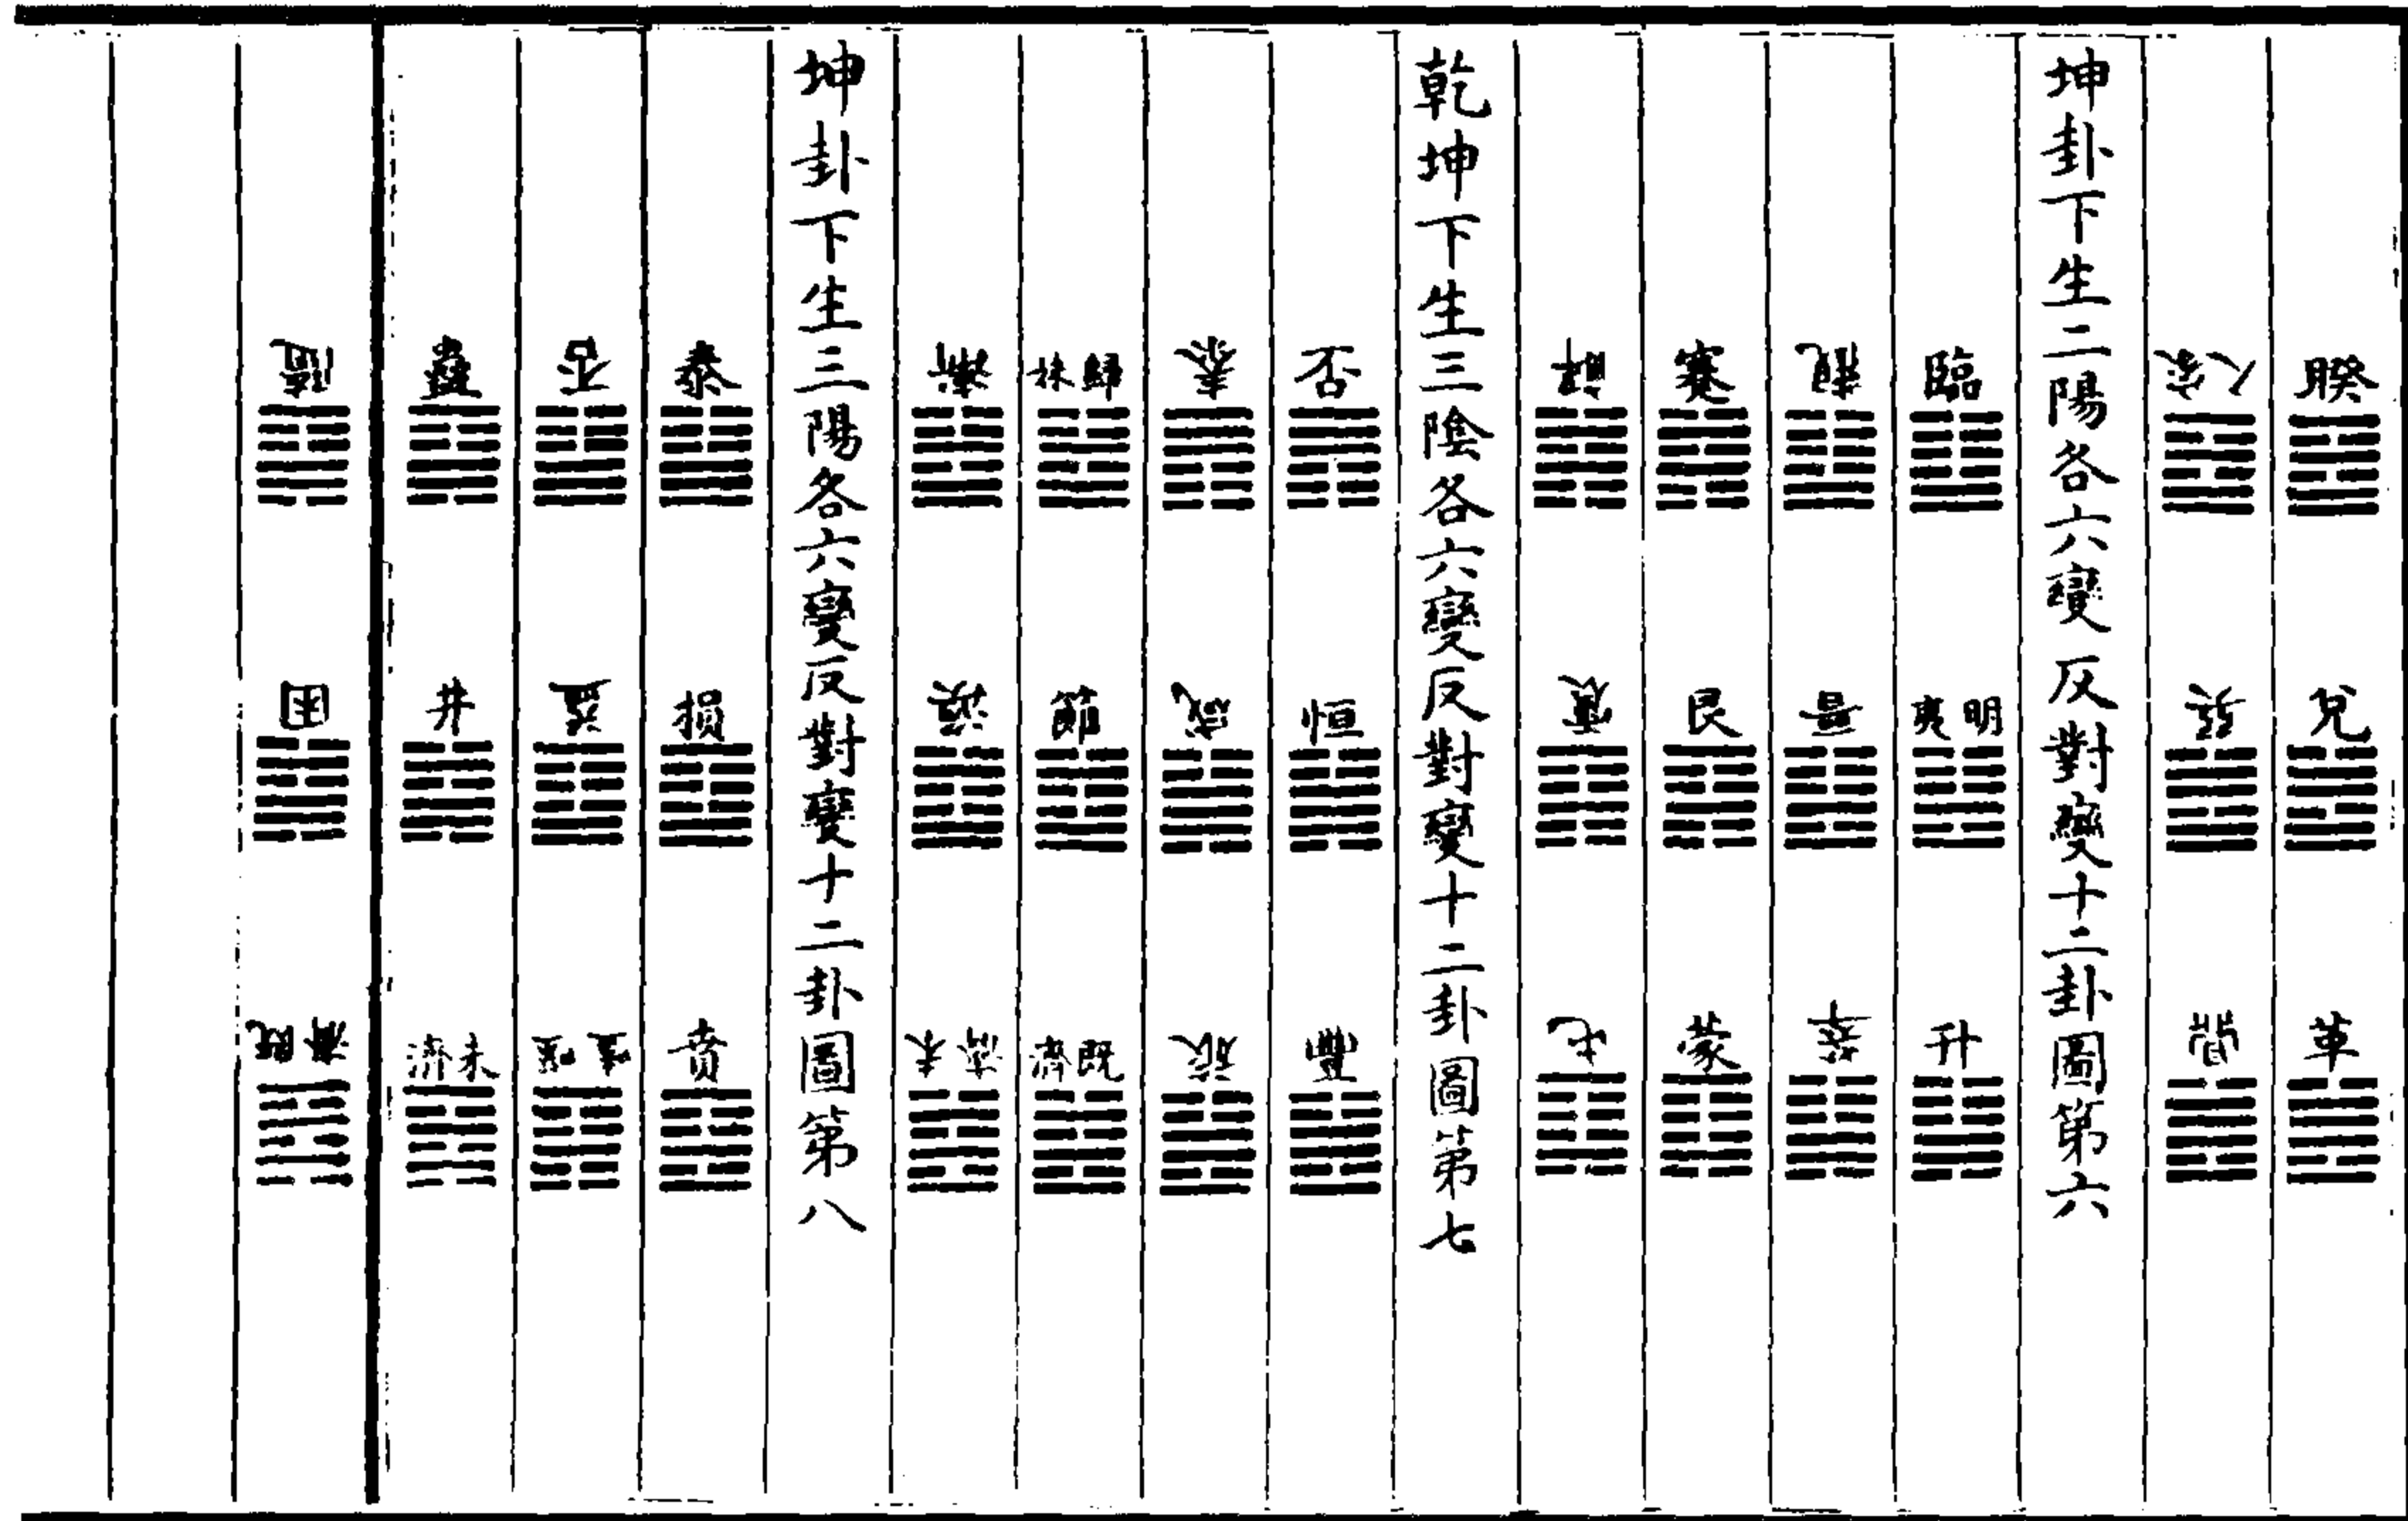 睽 兌 革
家人 巽 鼎
坤卦下生二陽各六變反對變十二卦圖第六
臨 明夷 升
觀 晉 萃
蹇 艮 蒙
解 震 屯
乾坤下生三陰各六變反對變十二卦圖第七
否 恒 豐
泰 咸 旅
歸妹 節 既濟
漸 渙 未濟
坤卦下生三陽各六變反對變十二卦圖第八
泰 損 賁
否 益 噬嗑
蠱 井 未濟
隨 困 既濟